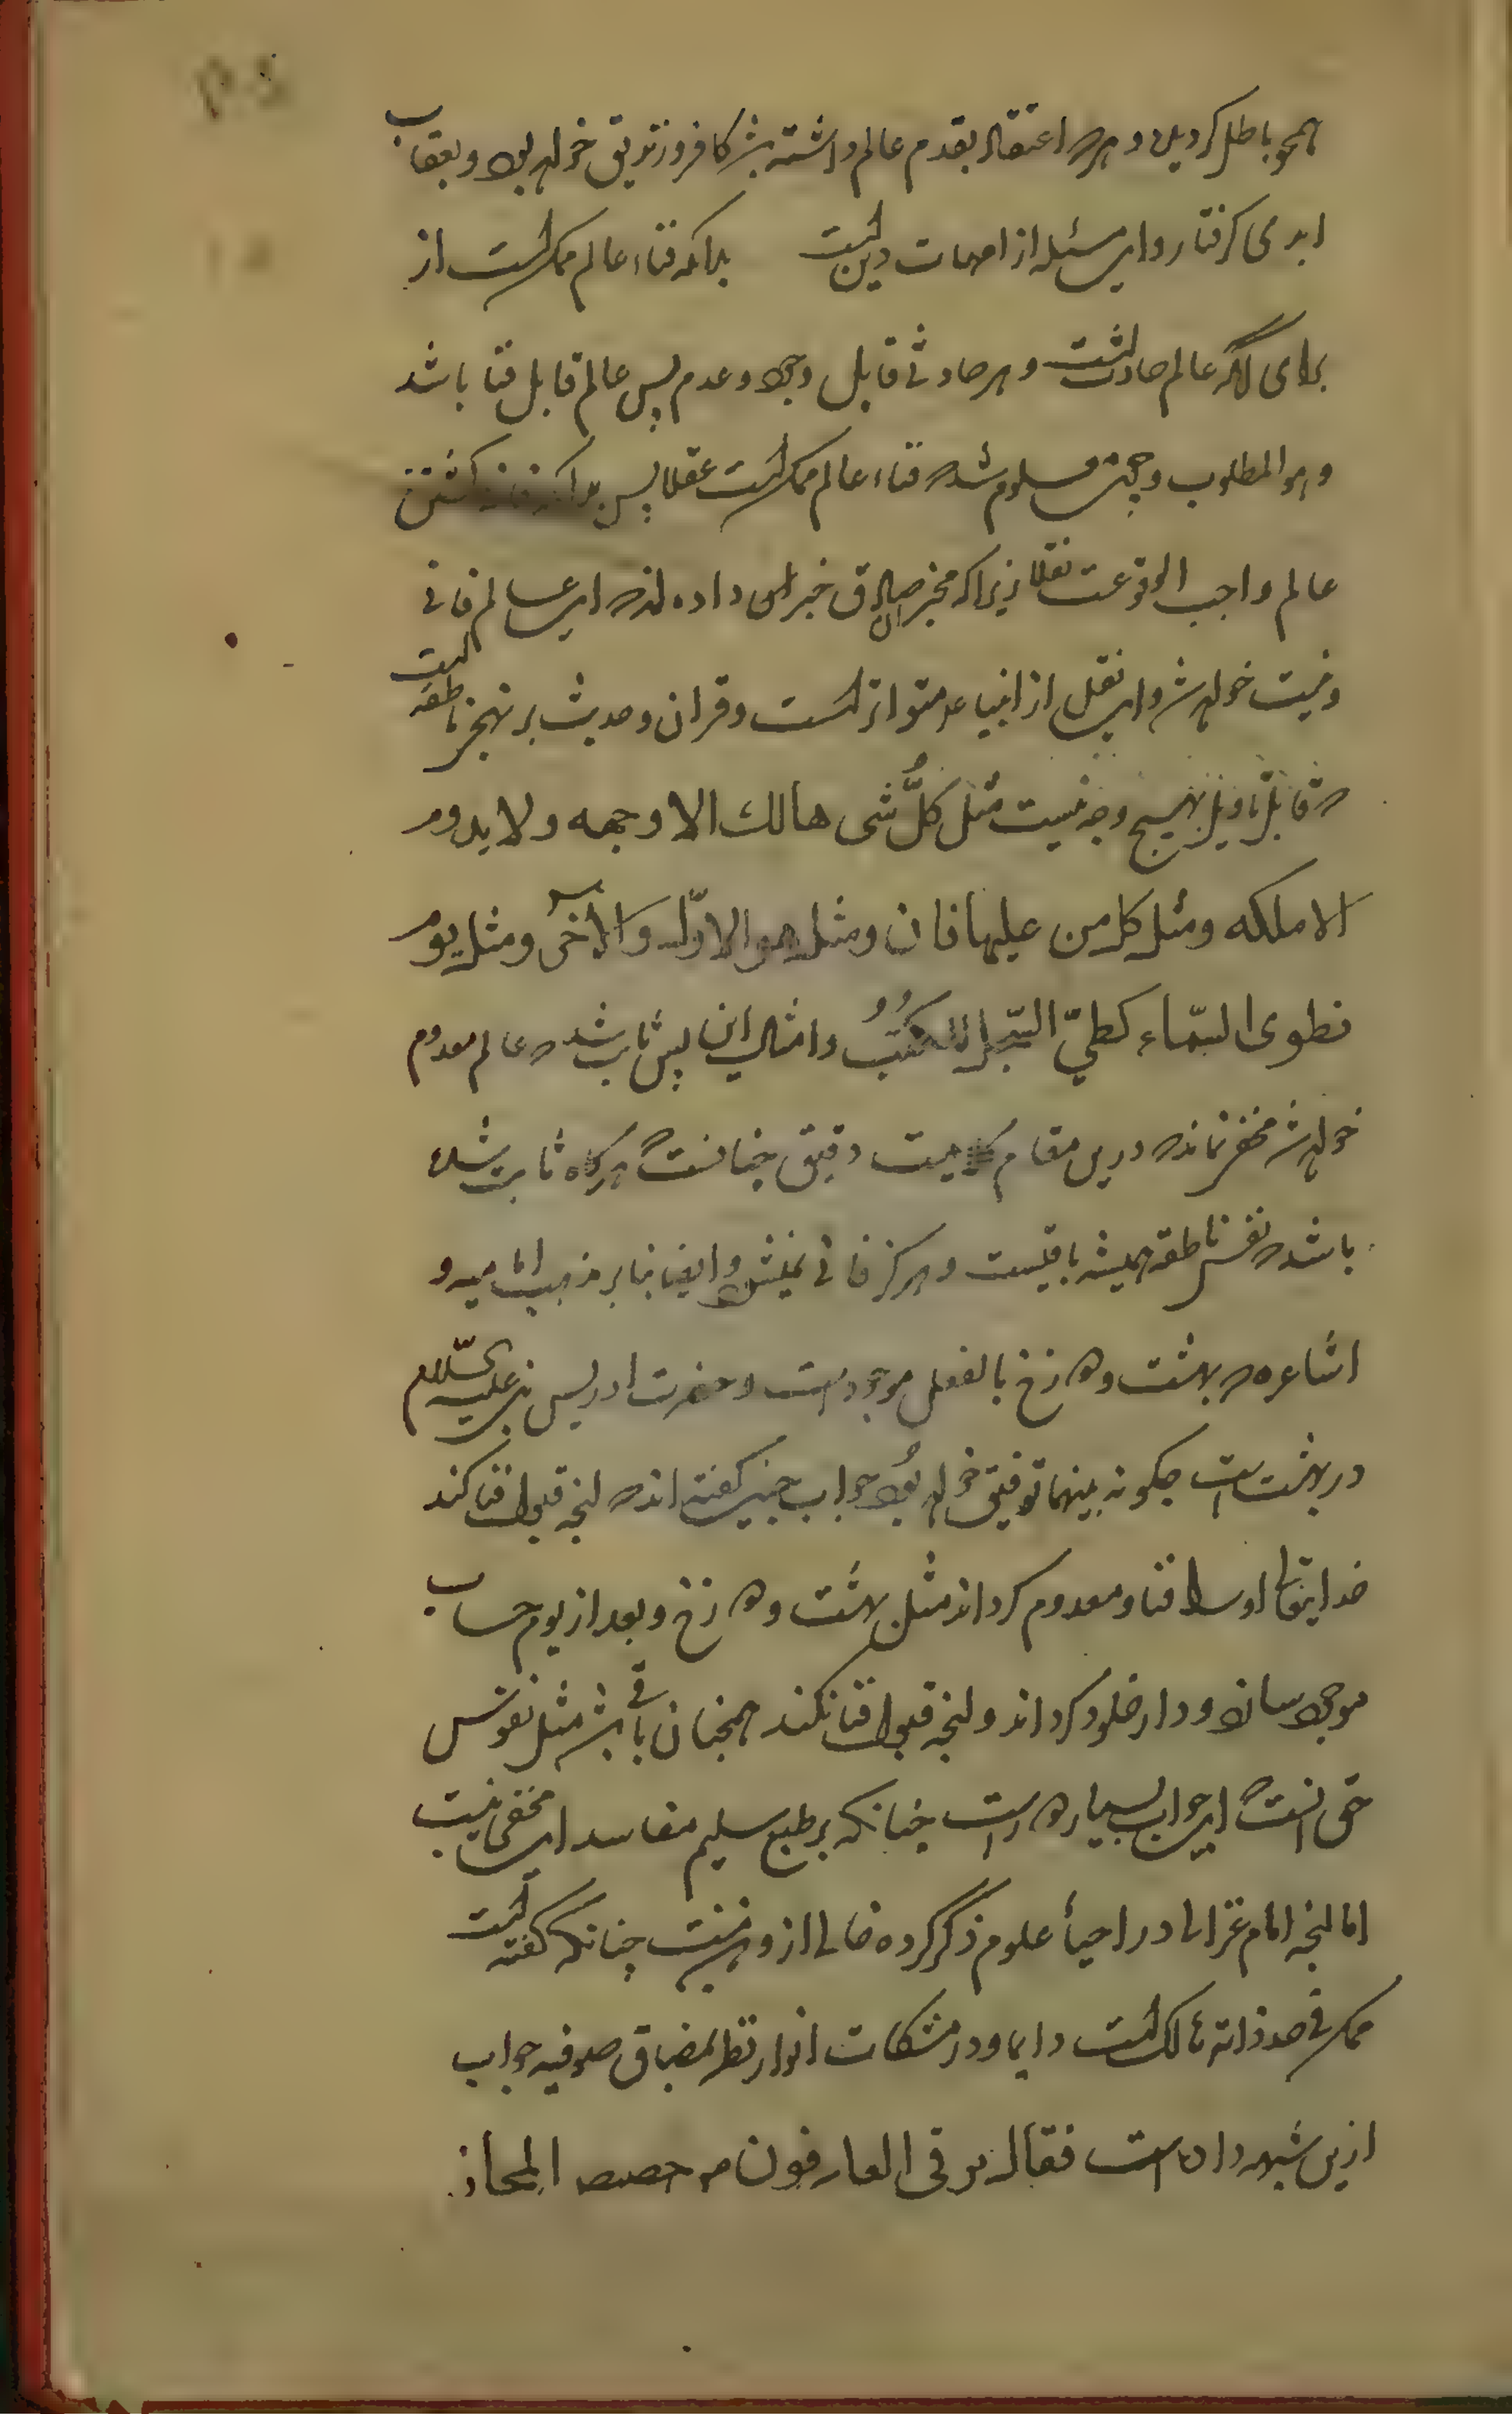 همحو باطل کردیدن و هرکه اعتقاد بقدم عالم داشته باشد کافر و زندیق خواهد بود و بعقاب
ابدی کرفتار و این مسئله از امهات دین است بدانکه فناء عالم ممکن است از
برای انکه عالم حادث است و هر حادثی قابل وجود و عدم پس عالم قابل فنا باشد
و هو المطلوب و چون معلوم شد که فناء عالم ممکن است عقلا پس بدانکه فانی کشتن
عالم واجب الوقوعست نقلا زیرا که مخبر صادق خبر از ان داده اند که این عالم فانی
و نیست خواهد شد و این نقل از انبیاء متواتر است و قران و حدیث بر نهجی ناطقه است
که قابل تاویل بهیچ وجه نیست مثل کلُّ شی هالك الا وجهه ولا یدوم
الا ملکه ومثل کل من علیها فان ومثل هو الاوّل والاٰخر ومثل یوم
نطوی السّماء کطیّ السّجل للکتُبُ و امثال این پس ثابت شد که عالم معدوم
خواهد شد مخفی نماند که درین مقام دقیق چنانست که هرکاه ثابت شده
باشد که نفس ناطقه همیشه باقیست و هرکز فانی نمیشود و ایضا بنابر مذهب امامیه و
اشاعره که بهشت و دوزخ بالفعل موجود است و حضرت ادریس نبی علیه السّلام
در بهشت است چکونه بینهما توفیق خواهد بُود جواب چنین کفته اند که انچه قبول فنا کند
خدایتعالی او را فنا و معدوم کرداند مثل بهشت و دوزخ و بعد از یوم حساب
موجود سازد و دار خلود کرداند و انچه قبول فنا نکند همچنان باقی باشد مثل نفوس
حق انست که این جواب بسیار دور است چنانکه بر طبع سلیم مفاسد این مخفی نیست
اما انچه امام غزالی در احیاء علوم ذکر کرده خالی از وجهی نیست چنانکه کفته است
ممکن فی حد ذاته هالک است دایما و در مشکات انوار نظر بمضاق صوفیه جواب
ازین شبهه داده است فقال ترقی العارفون من حصص المجاز